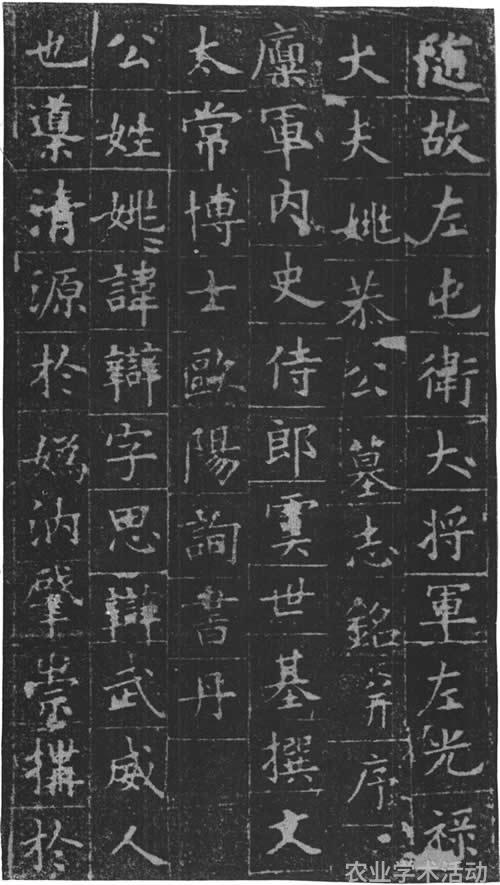 隨故左屯衛大将軍左光禄
大夫姚恭公墓志銘并序
軍内史侍郎虞世基撰文
太常博士歐陽詢書丹
公姓姚諱辯字思辯武威人
也導清源於媯汭肇崇構於
农业学术活动